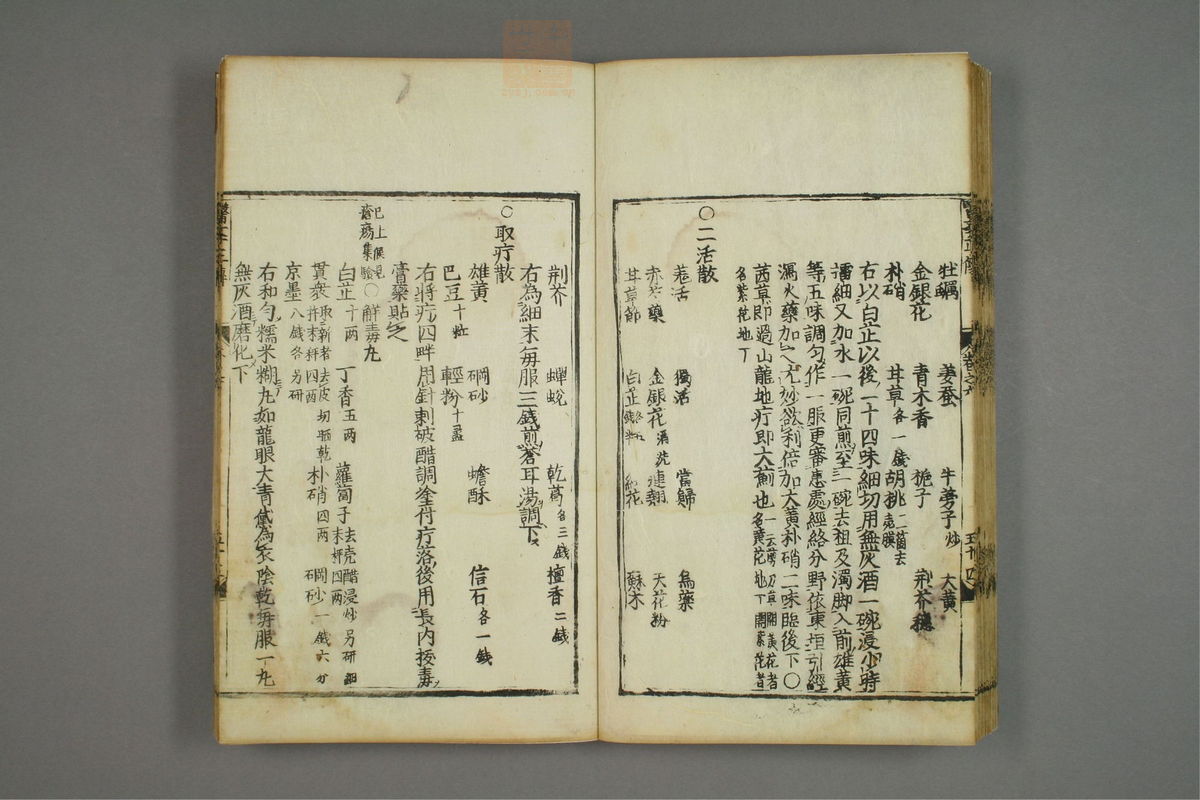 牡蠣 姜蚕 牛蒡子炒 大黄
金銀花 青木香 梔子 荆芥穗
朴硝 甘草各一錢 胡桃二箇去壳膜
右以白芷以後一十四味細切用無灰酒一碗浸少時
擂細又加水一碗同煎至一碗去柤及濁脚入前雄黄
等五味調匀作一服更審患處經絡分野依東垣引經
瀉火藥加之尤妙欲利倍加大黄朴硝二味臨後下〇
茜草即過山龍地疔即大薊也一云剪刀草開黄花者
名黄花地丁開紫花者
名紫花地丁
〇二活散
羗活 獨活 當歸 烏藥
赤芍藥 金銀花酒洗 連翹 天花粉
甘草節 白芷 紅花 蘇木
荆芥 蟬蛻 乾葛各三錢 檀香二錢
右為細末每服三錢煎蒼耳湯調下
〇取疔散
雄黄 硇砂 蟾酥 信石各一錢
巴豆十粒 輕粉十盝
右將疔四畔用針剌破醋調塗苻疔落後用長肉拔毒
膏藥貼之
已上俱見
瘡瘍集驗〇解毒丸
白芷十两 丁香五两 蘿蔔子去壳醋浸炒另研細
末秤四两
貫衆取新者去皮切晒乾
并末秤四两 朴硝四两 硼砂一錢六分
京墨八錢各另研
右和匀糯米糊丸如龍眼大青黛為衣陰乾每服一丸
無灰酒磨化下